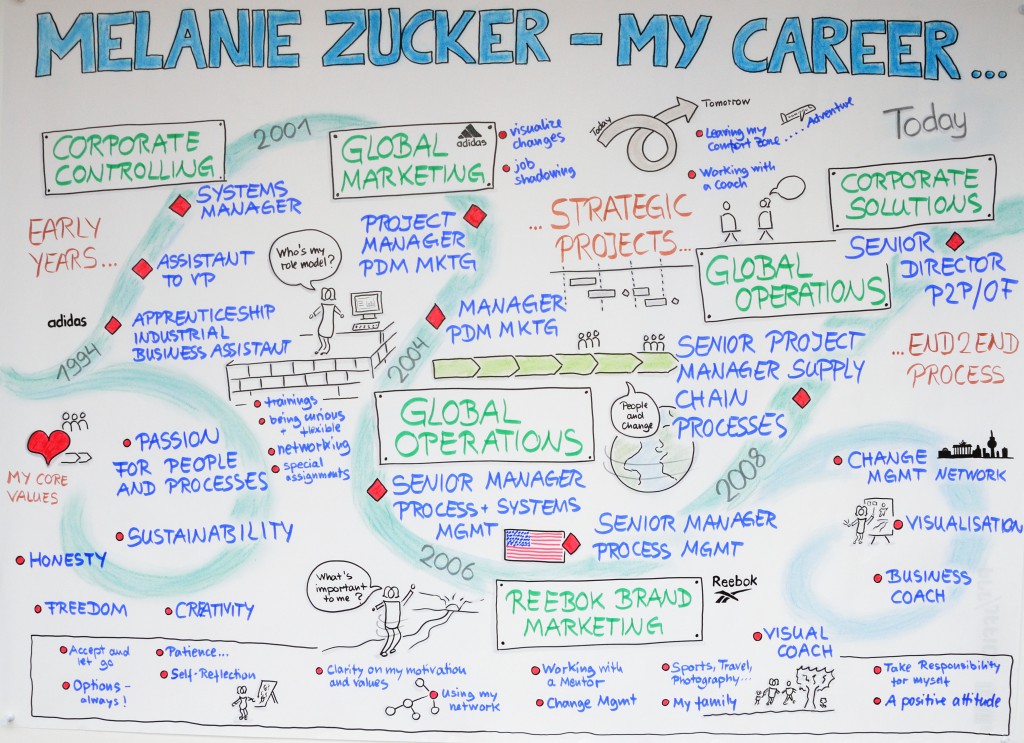 MELANIE ZUCKER - MY CAREER...
CORPORATE
CONTROLLING
2001
GLOBAL
MARKETING
adidas
visualize
changes
job
shadowing
Today
Tomorrow
Leaving my
Comfort Zone.....
Adventure
Working with
a Coach
Today
CORPORATE
SOLUTIONS
SENIOR
DIRECTOR
P2P/OF
EARLY
YEARS...
SYSTEMS
MANAGER
ASSISTANT
TO VP
adidas
APPRENTICESHIP
INDUSTRIAL
BUSINESS ASSISTANT
1994
Who's my
role model?
PROJECT
MANAGER
PDM MKTG
MANAGER
PDM MKTG
2004
...STRATEGIC
PROJECTS...
GLOBAL
OPERATIONS
SENIOR PROJECT
MANAGER SUPPLY
CHAIN
PROCESSES
...END2END
PROCESS
trainings
being curious
+ flexible
networking
special
assignments
GLOBAL
OPERATIONS
SENIOR MANAGER
PROCESS + SYSTEMS
MGMT
People
and
Change
2008
SENIOR MANAGER
PROCESS MGMT
2006
REEBOK BRAND
MARKETING
Reebok
MY CORE
VALUES
PASSION
FOR PEOPLE
AND PROCESSES
SUSTAINABILITY
HONESTY
FREEDOM
CREATIVITY
What's
important
to me?
CHANGE
MGMT NETWORK
VISUALISATION
BUSINESS
COACH
VISUAL
COACH
Accept and
let go
Options -
always!
Patience...
Self-Reflection
Clarity on my motivation
and values
using my
network
Working with
a Mentor
Change Mgmt
Sports, Travel,
Photography...
My family
Take Responsibility
for myself
A positive attitude